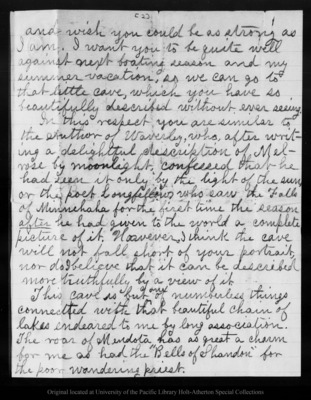 and wish you could be as strong as
I am. I want you to be quite well
against next boating season and my
summer vacation, so we can go to
that little cave, which you have so
beautifully described without ever seeing.
In this respect, you are similar to
the author of Waverley, who, after writ-
ing a delightful description of Mel-
rose by moonlight, confessed that he
had seen it only by the light of the sun,
or the poet Longfellow who saw the Falls
of Minnehaha for the first time the season
after he had given to the world a complete
picture of it. However, I think the cave
will not fall short of your portrait,
nor do I believe that it can be described
more truthfully by a view of it
This cave is but one of numberless things
connected with that beautiful chain of
lakes endeared to me by long association.
The roar of Mendota has as great a charm
for me as had the "Bells of Shandon" for
the poor wandering priest.
Original located at University of the Pacific Library Holt-Atherton Special Collections